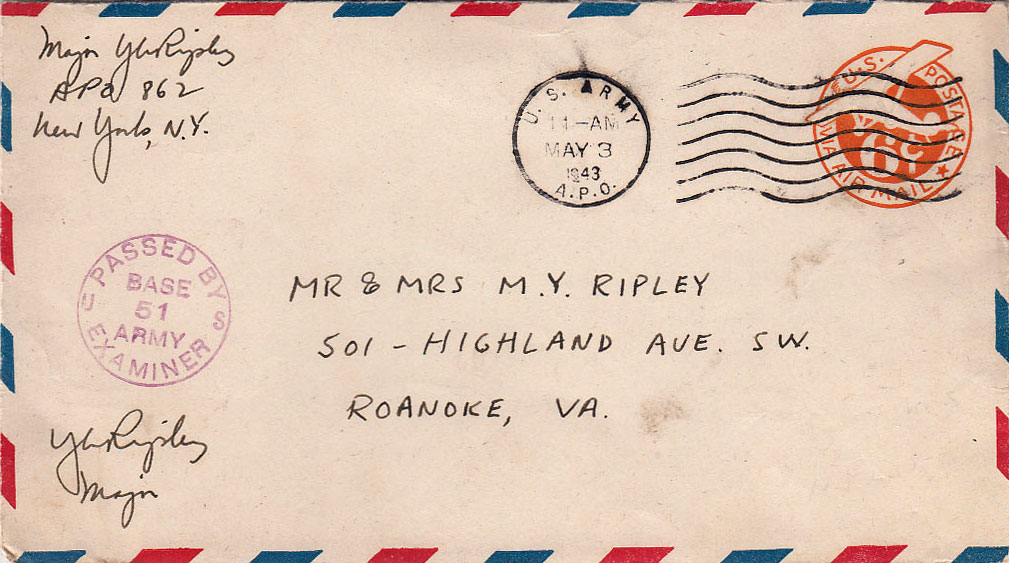 Major YW Ripley
APO 862
New York, N.Y.
U.S. ARMY
11-AM
MAY 3
1943
A.P.O.
U.S. POSTAGE
VIA AIR MAIL
6¢
PASSED BY
U S
BASE
51
ARMY
EXAMINER
MR & MRS M.Y. RIPLEY
501 - HIGHLAND AVE. SW.
ROANOKE, VA.
YW Ripley
Major